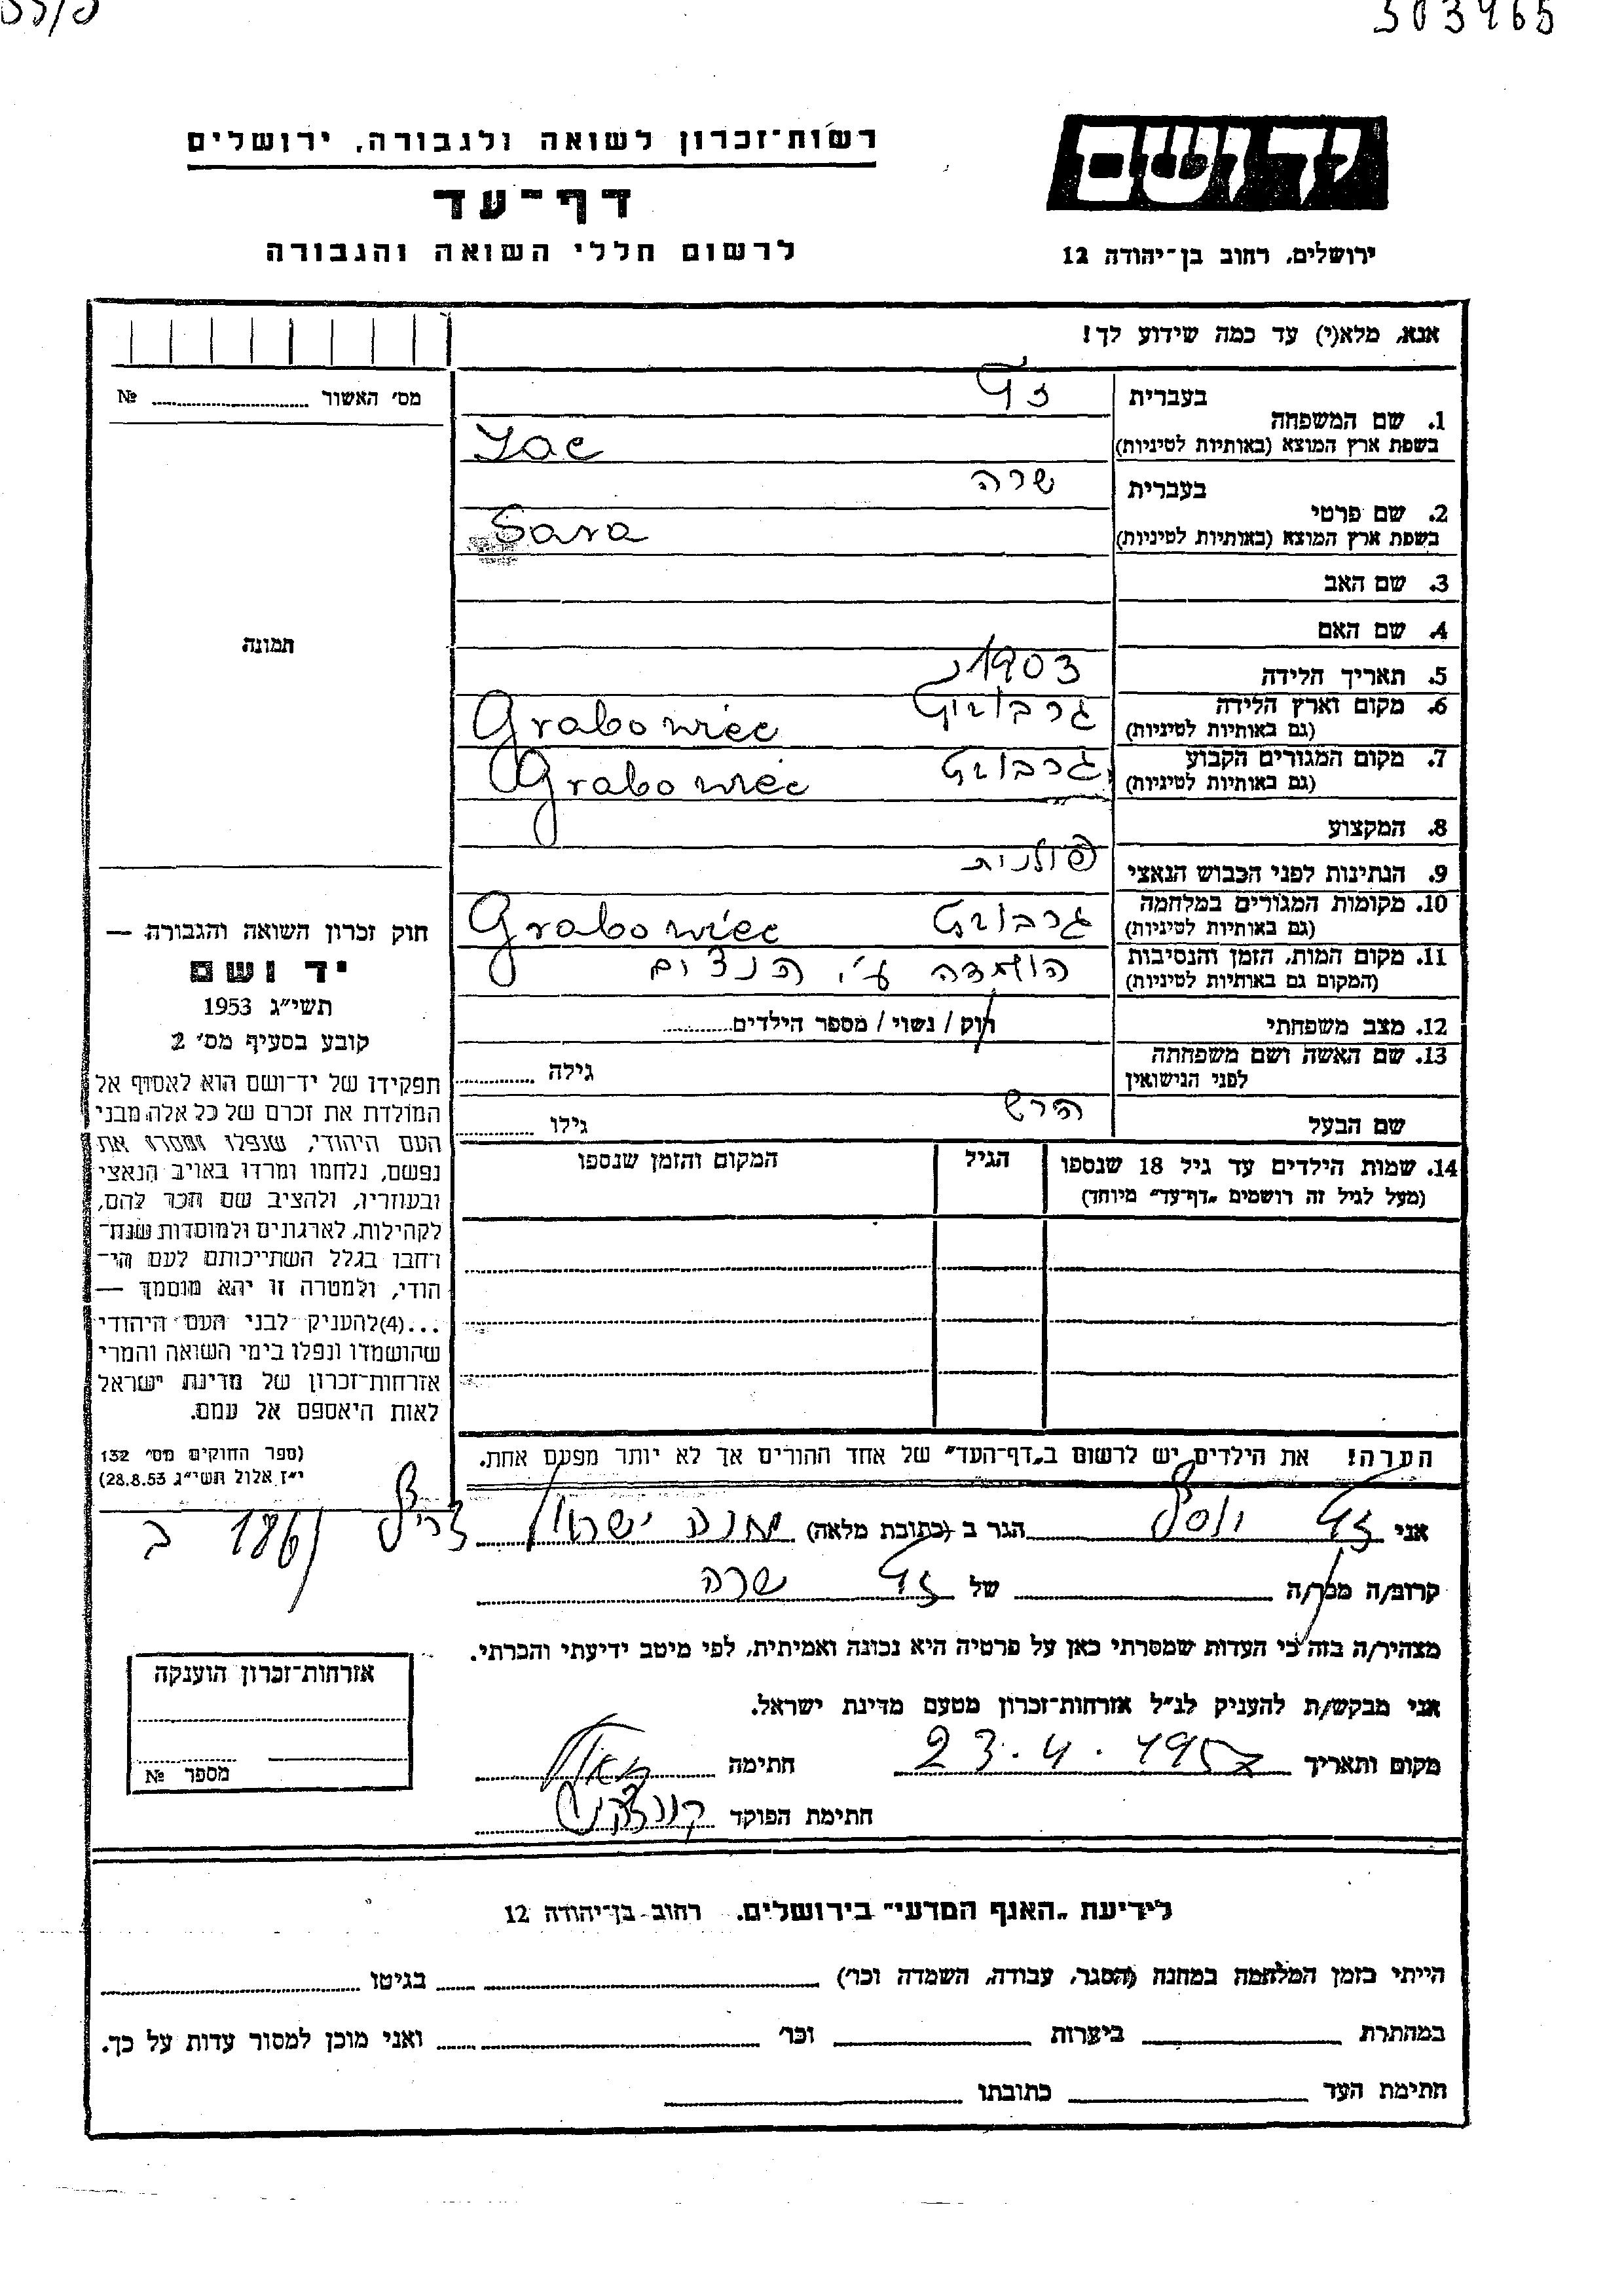 303965
רשות־זכרון לשואה ולגבורה, ירושלים
יד ושם
דף־עד
לרשום חללי השואה והגבורה
ירושלים, רחוב בן־יהודה 12
אנא, מלא(י) עד כמה שידוע לך!
מס׳ האשור № 
1. שם המשפחה
בעברית
בשפת ארץ המוצא (באותיות לטיניות)
2. שם פרטי
בעברית שרה
בשפת ארץ המוצא (באותיות לטיניות) Sara
3. שם האב
4. שם האם
תמונה
5. תאריך הלידה 1903
6. מקום וארץ הלידה Grabowiec
(גם באותיות לטיניות)
7. מקום המגורים הקבוע Grabowiec
(גם באותיות לטיניות)
8. המקצוע
9. הנתינות לפני הכבוש הנאצי פולנית
10. מקומות המגורים במלחמה Grabowiec
(גם באותיות לטיניות)
11. מקום המות, הזמן והנסיבות הושמדה ע״י הנצים
(המקום גם באותיות לטיניות)
12. מצב משפחתי רוק / נשוי / מספר הילדים
13. שם האשה ושם משפחתה גילה
לפני הנישואין
שם הבעל הרש גילו
14. שמות הילדים עד גיל 18 שנספו הגיל המקום והזמן שנספו
(מעל לגיל זה רושמים „דף־עד״ מיוחד)
חוק זכרון השואה והגבורה —
יד ושם
תשי״ג 1953
קובע בסעיף מס׳ 2
תפקידו של יד־ושם הוא לאסוף אל
המולדת את זכרם של כל אלה מבני
העם היהודי, שנפלו ומסרו את
נפשם, נלחמו ומרדו באויב הנאצי
ובעוזריו, ולהציב שם וזכר להם,
לקהילות, לארגונים ולמוסדות שנח־
רחבו בגלל השתייכותם לעם הי־
הודי, ולמטרה זו יהא מוסמך —
...(4)להעניק לבני העם היהודי
שהושמדו ונפלו בימי השואה והמרי
אזרחות־זכרון של מדינת ישראל
לאות היאספם אל עמם.
(ספר החוקים מס׳ 132
י״ז אלול תשי״ג 28.8.53)
הערה! את הילדים יש לרשום ב„דף־העד״ של אחד ההורים אך לא יותר מפעם אחת.
אני יוסף הגר ב (כתובת מלאה) מחנה ישראל 186/ ב
קרוב/ה מכר/ה של שרה
מצהיר/ה בזה כי העדות שמסרתי כאן על פרטיה היא נכונה ואמיתית, לפי מיטב ידיעתי והכרתי.
אני מבקש/ת להעניק לנ״ל אזרחות־זכרון מטעם מדינת ישראל.
מקום ותאריך 23.4.1957 חתימה
חתימת הפוקד
אזרחות־זכרון הוענקה
מספר №
לידיעת „האגף המדעי״ בירושלים, רחוב בן־יהודה 12
הייתי בזמן המלחמה במחנה (הסגר, עבודה, השמדה וכו׳) בגיטו
במחתרת ביערות וכו׳ ואני מוכן למסור עדות על כך.
חתימת העד כתובתו